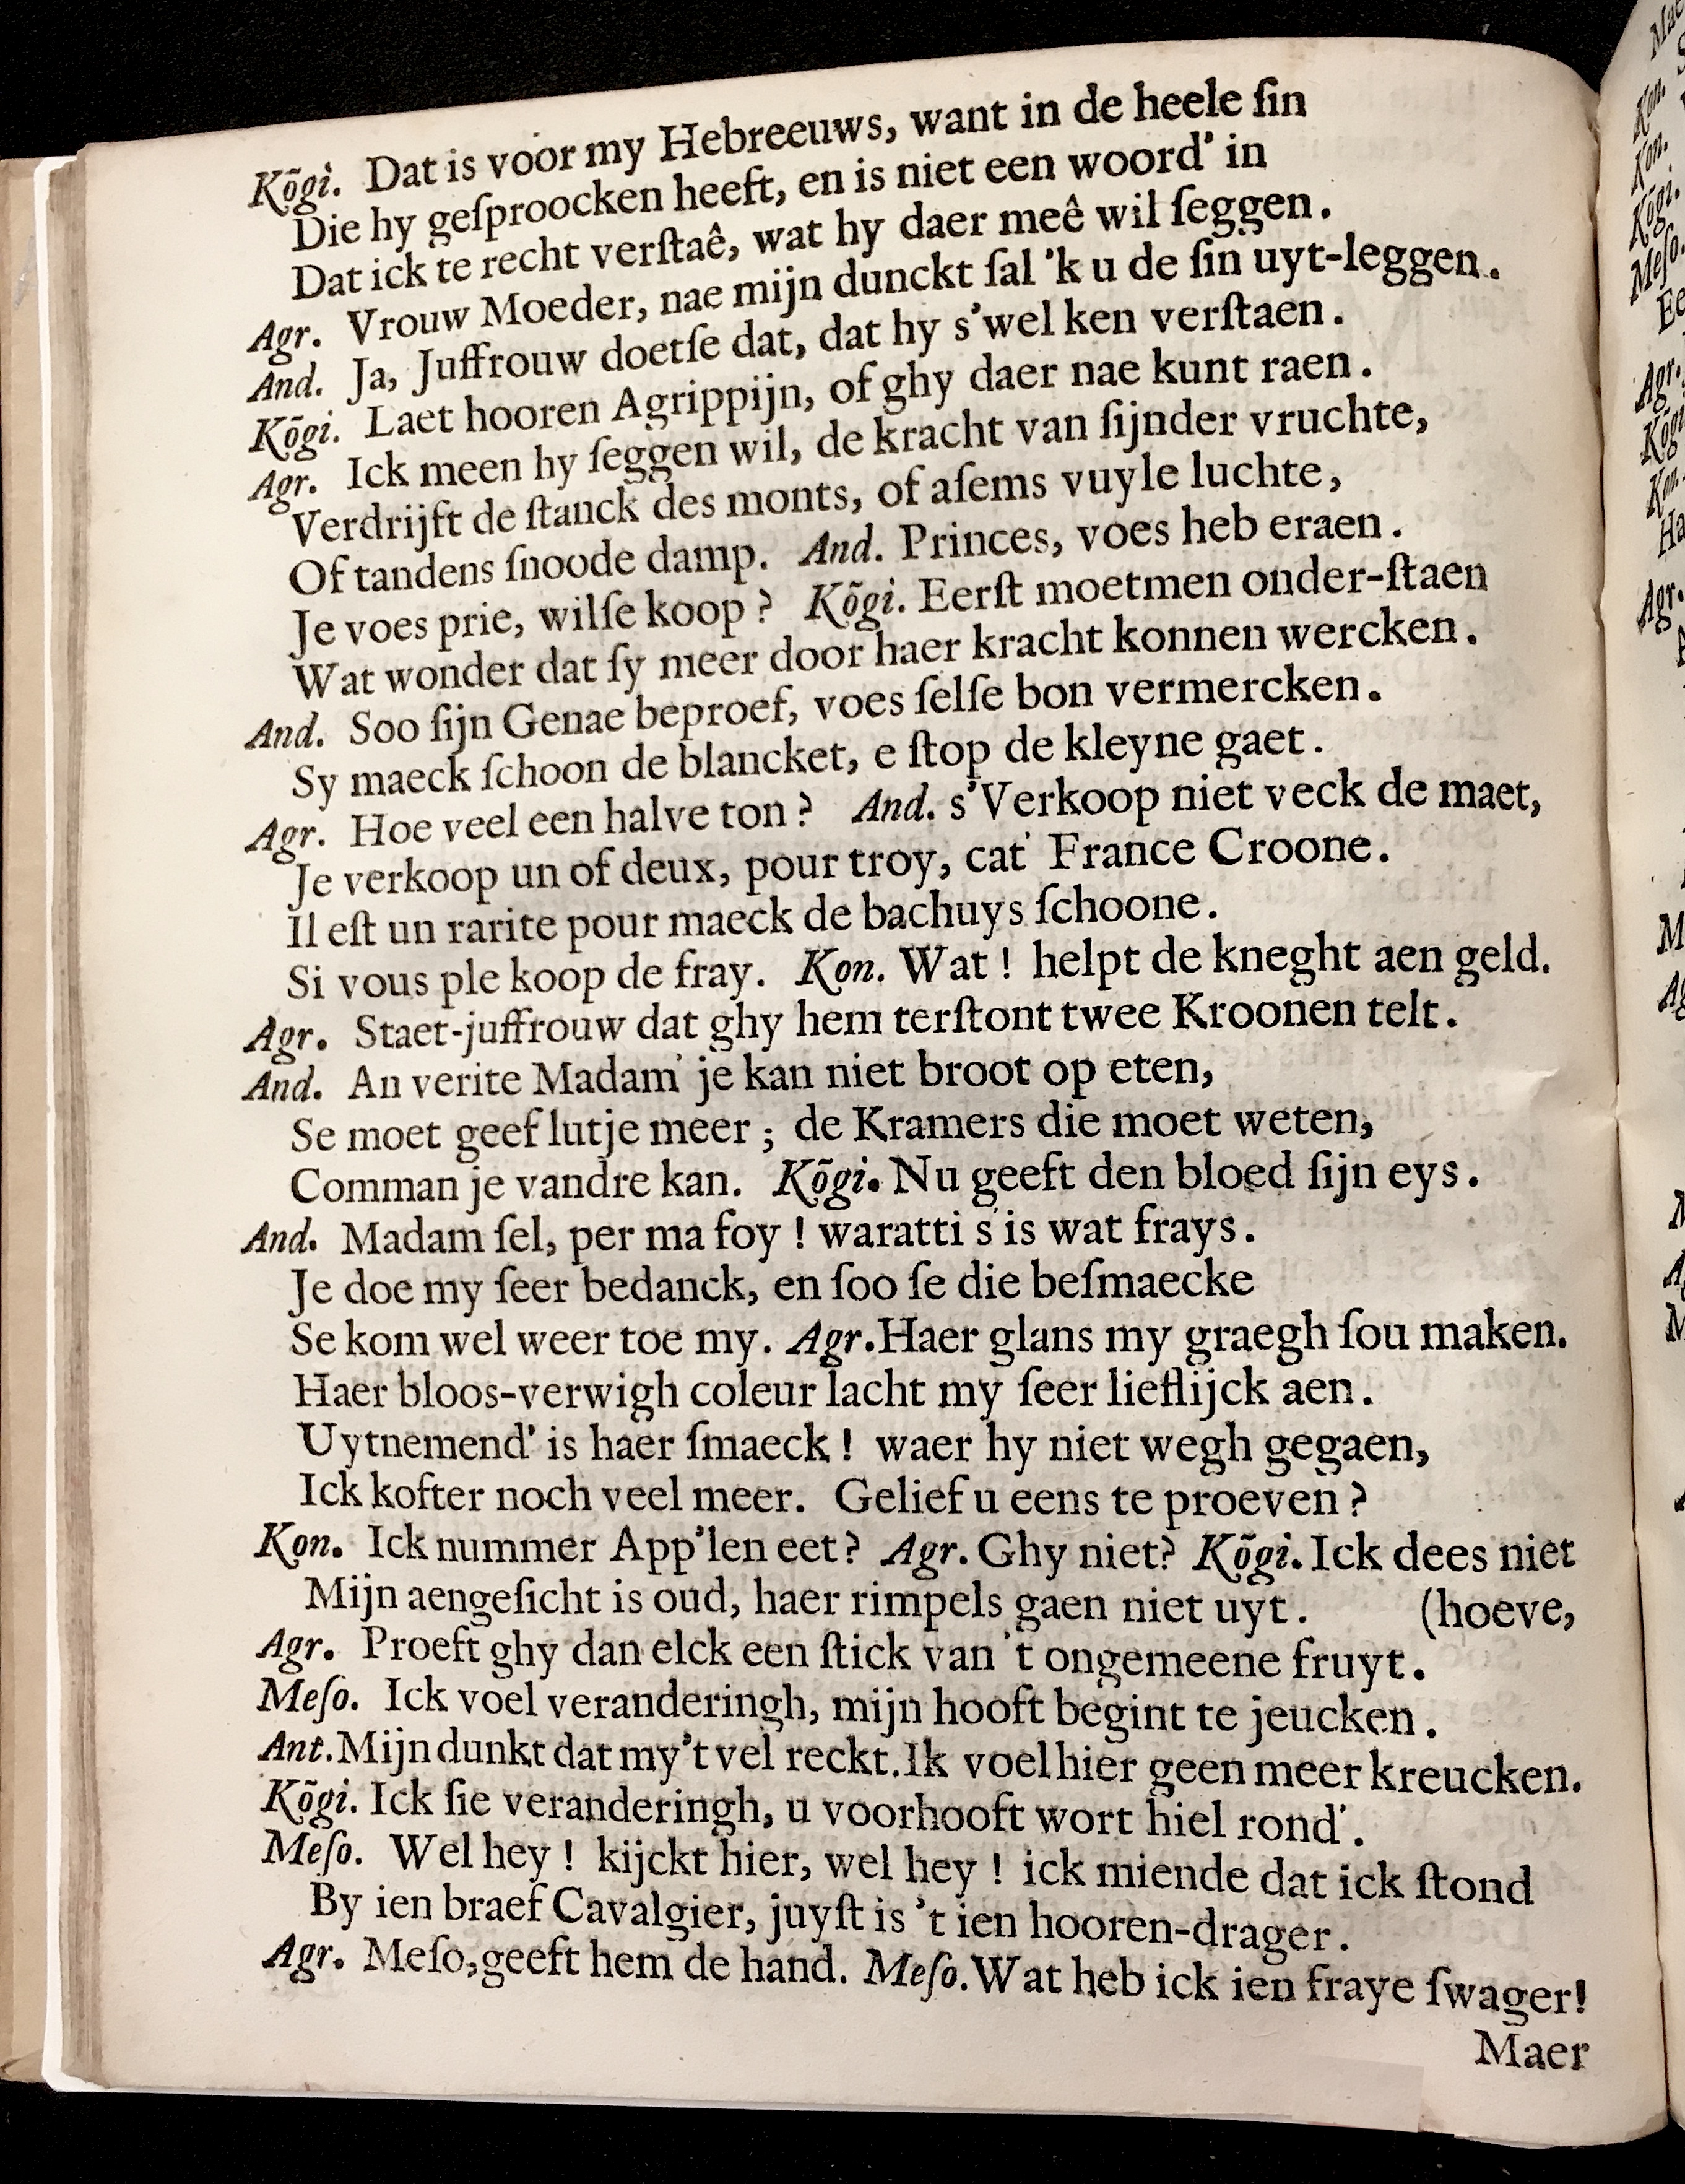 Kõgi. Dat is voor my Hebreeuws, want in de heele ſin
Die hy geſproocken heeft, en is niet een woord' in
Dat ick te recht verſtaê, wat hy daer meê wil ſeggen.
Agr. Vrouw Moeder, nae mijn dunckt ſal 'k u de ſin uyt-leggen.
And. Ja, Juffrouw doetſe dat, dat hy s'wel ken verſtaen.
Kõgi. Laet hooren Agrippijn, of ghy daer nae kunt raen.
Agr. Ick meen hy ſeggen wil, de kracht van ſijnder vruchte,
Verdrijft de ſtanck des monts, of aſems vuyle luchte,
Of tandens ſnoode damp. And. Princes, voes heb eraen.
Je voes prie, wilſe koop? Kõgi. Eerſt moetmen onder-ſtaen
Wat wonder dat ſy meer door haer kracht konnen wercken.
And. Soo ſijn Genae beproef, voes ſelſe bon vermercken.
Sy maeck ſchoon de blancket, e ſtop de kleyne gaet.
Agr. Hoe veel een halve ton? And. s'Verkoop niet veck de maet,
Je verkoop un of deux, pour troy, cat' France Croone.
Il eſt un rarite pour maeck de bachuys ſchoone.
Si vous ple koop de fray. Kon. Wat! helpt de kneght aen geld.
Agr. Staet-juffrouw dat ghy hem terſtont twee Kroonen telt.
And. An verite Madam' je kan niet broot op eten,
Se moet geef lutje meer; de Kramers die moet weten,
Comman je vandre kan. Kõgi. Nu geeft den bloed ſijn eys.
And. Madam ſel, per ma foy! waratti s'is wat frays.
Je doe my ſeer bedanck, en ſoo ſe die beſmaecke
Se kom wel weer toe my. Agr. Haer glans my graegh ſou maken.
Haer bloos-verwigh coleur lacht my ſeer lieflijck aen.
Uytnemend' is haer ſmaeck! waer hy niet wegh gegaen,
Ick kofter noch veel meer. Gelief u eens te proeven?
Kon. Ick nummer App'len eet? Agr. Ghy niet? Kõgi. Ick dees niet
Mijn aengeſicht is oud, haer rimpels gaen niet uyt. (hoeve,
Agr. Proeft ghy dan elck een ſtick van 't ongemeene fruyt.
Meſo. Ick voel veranderingh, mijn hooft begint te jeucken.
Ant. Mijn dunkt dat my't vel reckt. Ik voel hier geen meer kreucken.
Kõgi. Ick ſie veranderingh, u voorhooft wort hiel rond'.
Meſo. Wel hey! kijckt hier, wel hey! ick miende dat ick ſtond
By ien braef Cavalgier, juyſt is 't ien hooren-drager.
Agr. Meſo, geeft hem de hand. Meſo. Wat heb ick ien fraye ſwager!
Maer
Mae
Kon.
Kon.
Kõgi.
Meſo.
Ee
Agr.
Kõgi
Kon.
Ha
Agr.